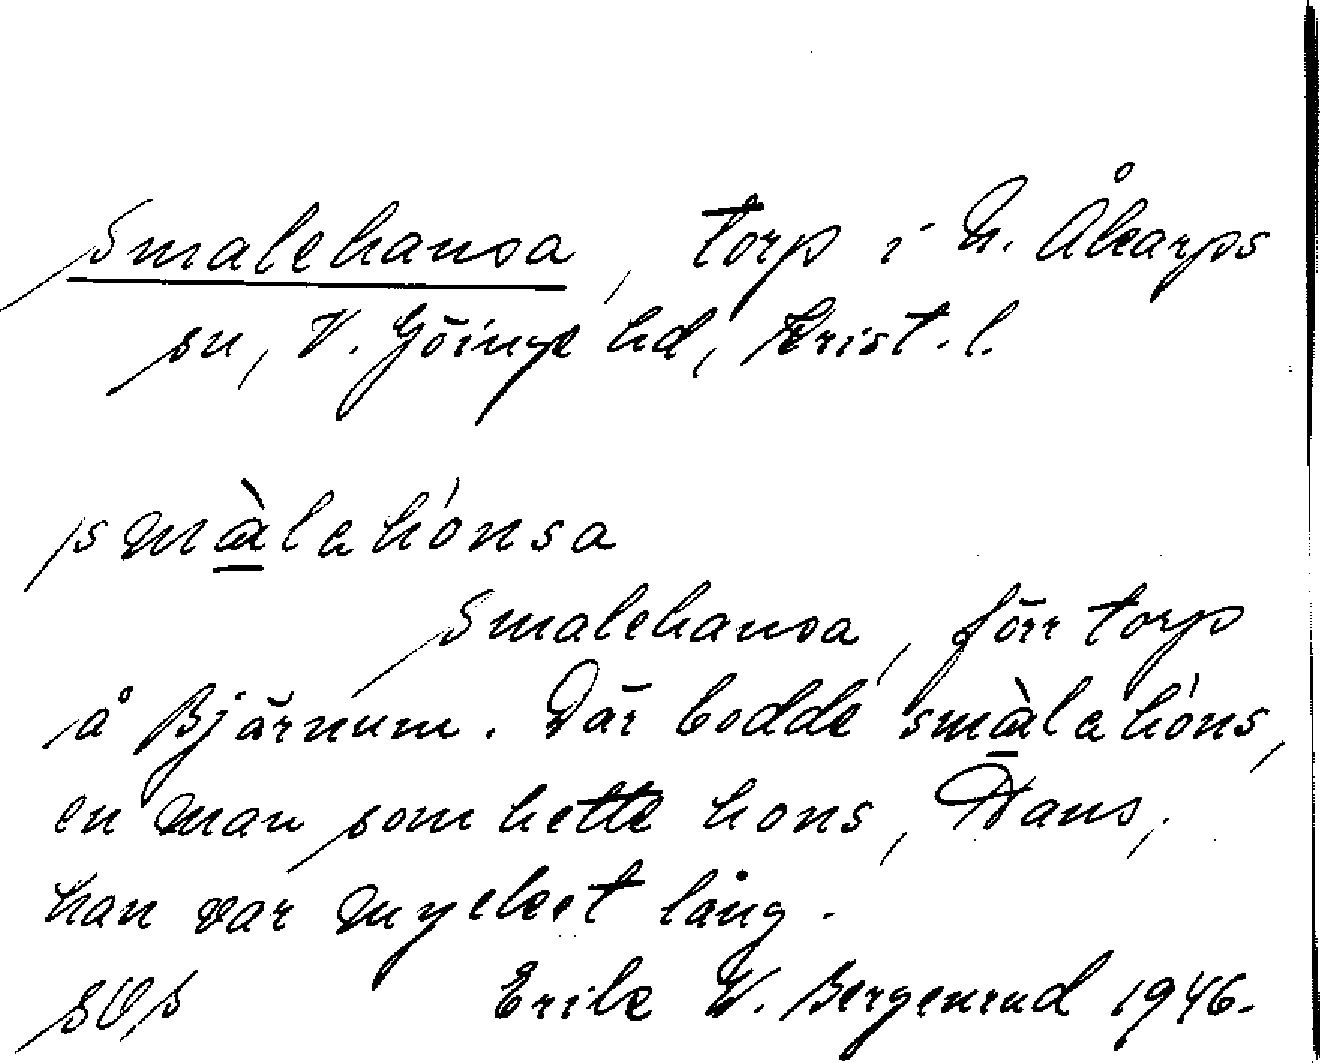 Smalehansa, torp i N. Åkarps
sn, V. Göinge hd, Krist. l.
smàlahónsa
Smalehansa, förr torp
å Bjärnum. Där bodde smàlahóns,
en man som hette hons, Hans,
han var mycket lång.
SOS Erik W. Bergenrud 1946.